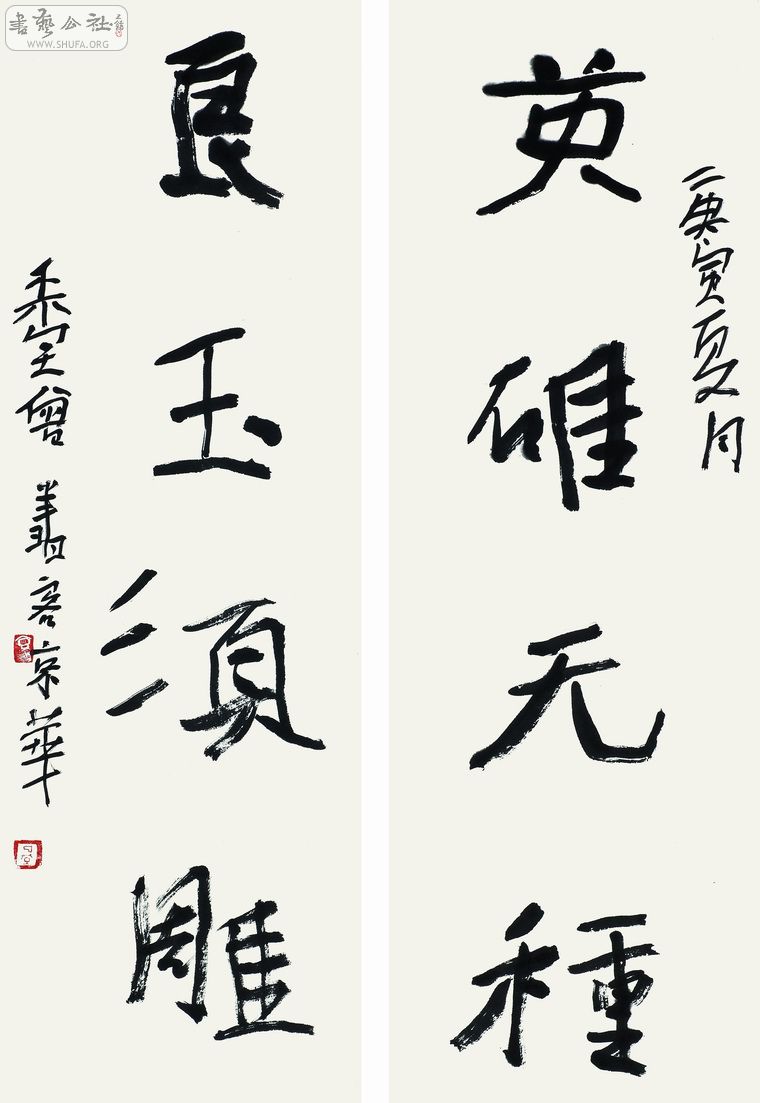 書藝公社
WWW.SHUFA.ORG
庚寅夏月
英雄无種
良玉須雕
曾翔客京華